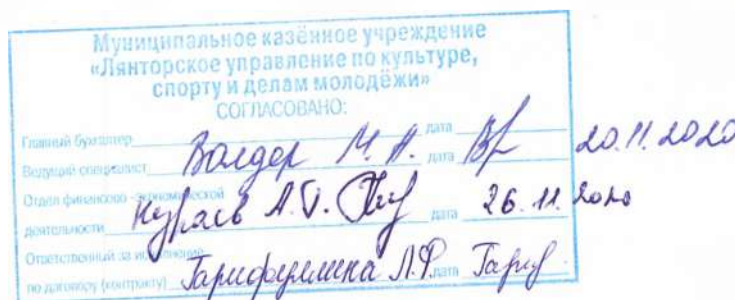 Муниципальное казённое учреждение
«Лянторское управление по культуре,
спорту и делам молодёжи»
СОГЛАСОВАНО:
Главный бухгалтер дата 20.11.2020
Ведущий специалист Волдер М. А. дата
Отдел финансово-экономической
деятельности А.Г. дата 26.11.2020
Ответственный за исполнение
по договору (контракту) Гарифуллина Л.Ф. дата Гариф